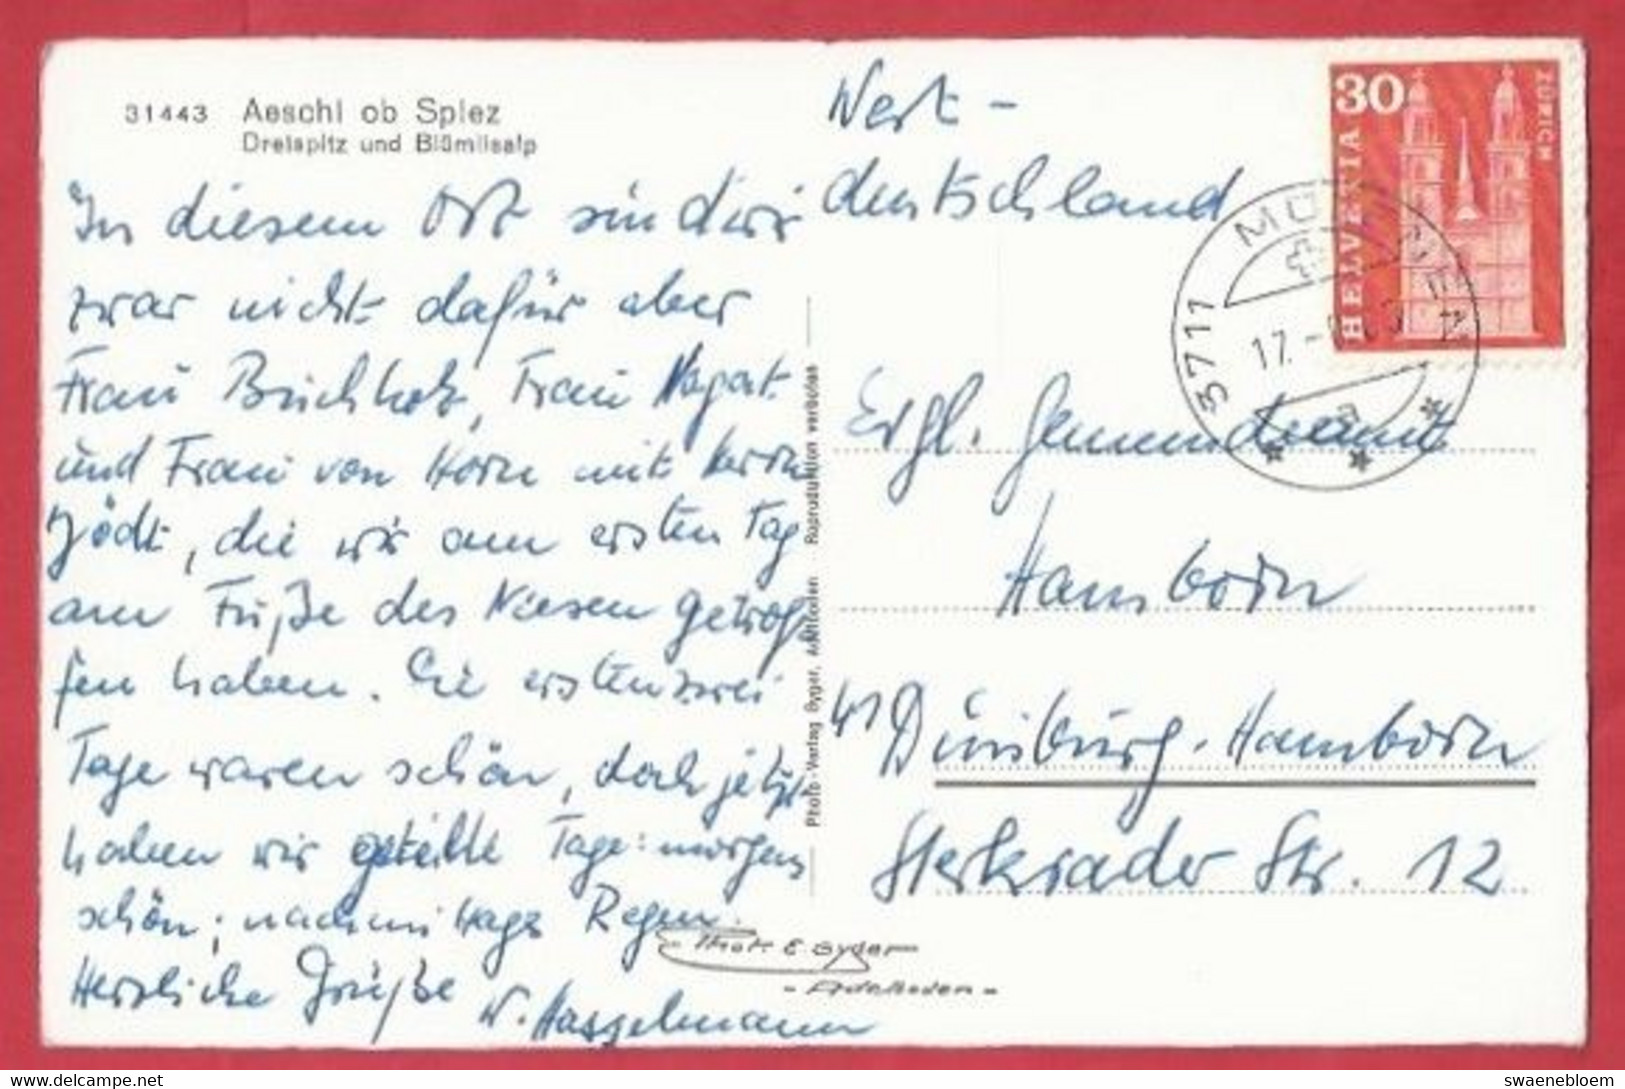 31443 Aeschi ob Spiez
Dreispitz und Blümlisalp
In diesem Ort sind wir
zwar nicht dafür aber
Frau Buchholz, Frau
und Frau von Horn mit Herrn
Jödt, die wir am ersten Tag
am Fuße des Niesen getrof
fen haben. Die ersten zwei
Tage waren schön, doch jetzt
haben wir geteilte Tage: morgens
schön; nachmittags Regen.
Herzliche Grüße
W. Hasselmann
Photo-Verlag Gyger, Adelboden Reproduktion verboten
Phot. E. Gyger
- Adelboden -
West-
deutschland
30
HELVETIA
ZÜRICH
3711 MÜLENEN
17.
Evgl. Gemeindeamt
Hamborn
41 Duisburg-Hamborn
Sterkrader Str. 12
www.delcampe.net
swaenebloem